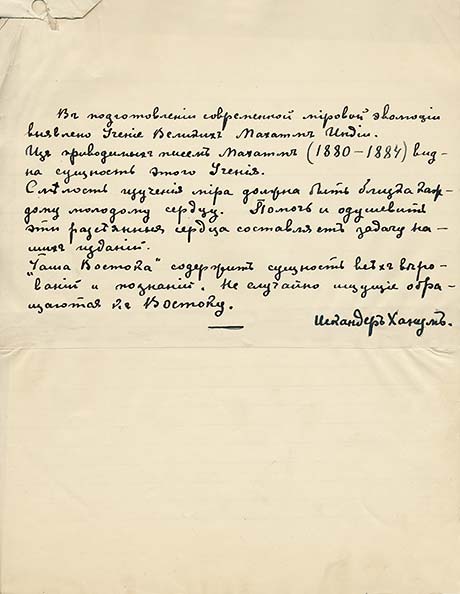 Въ подготовленiи современной мiровой эволюцiи
выявлено Ученiе Великихъ Махатмъ Индiи.
Изъ приводимыхъ писемъ Махатмъ (1880–1884) вид-
на сущность этого Ученiя.
Смѣлость изученiя мiра должна быть близка каж-
дому молодому сердцу. Помочь и одушевить
эти разсѣянныя сердца составляетъ задачу на-
шихъ изданiй.
„Чаша Востока“ содержитъ сущность всѣхъ вѣро-
ванiй и познанiй. Не случайно ищущiе обра-
щаются къ Востоку.
Искандеръ Ханумъ.